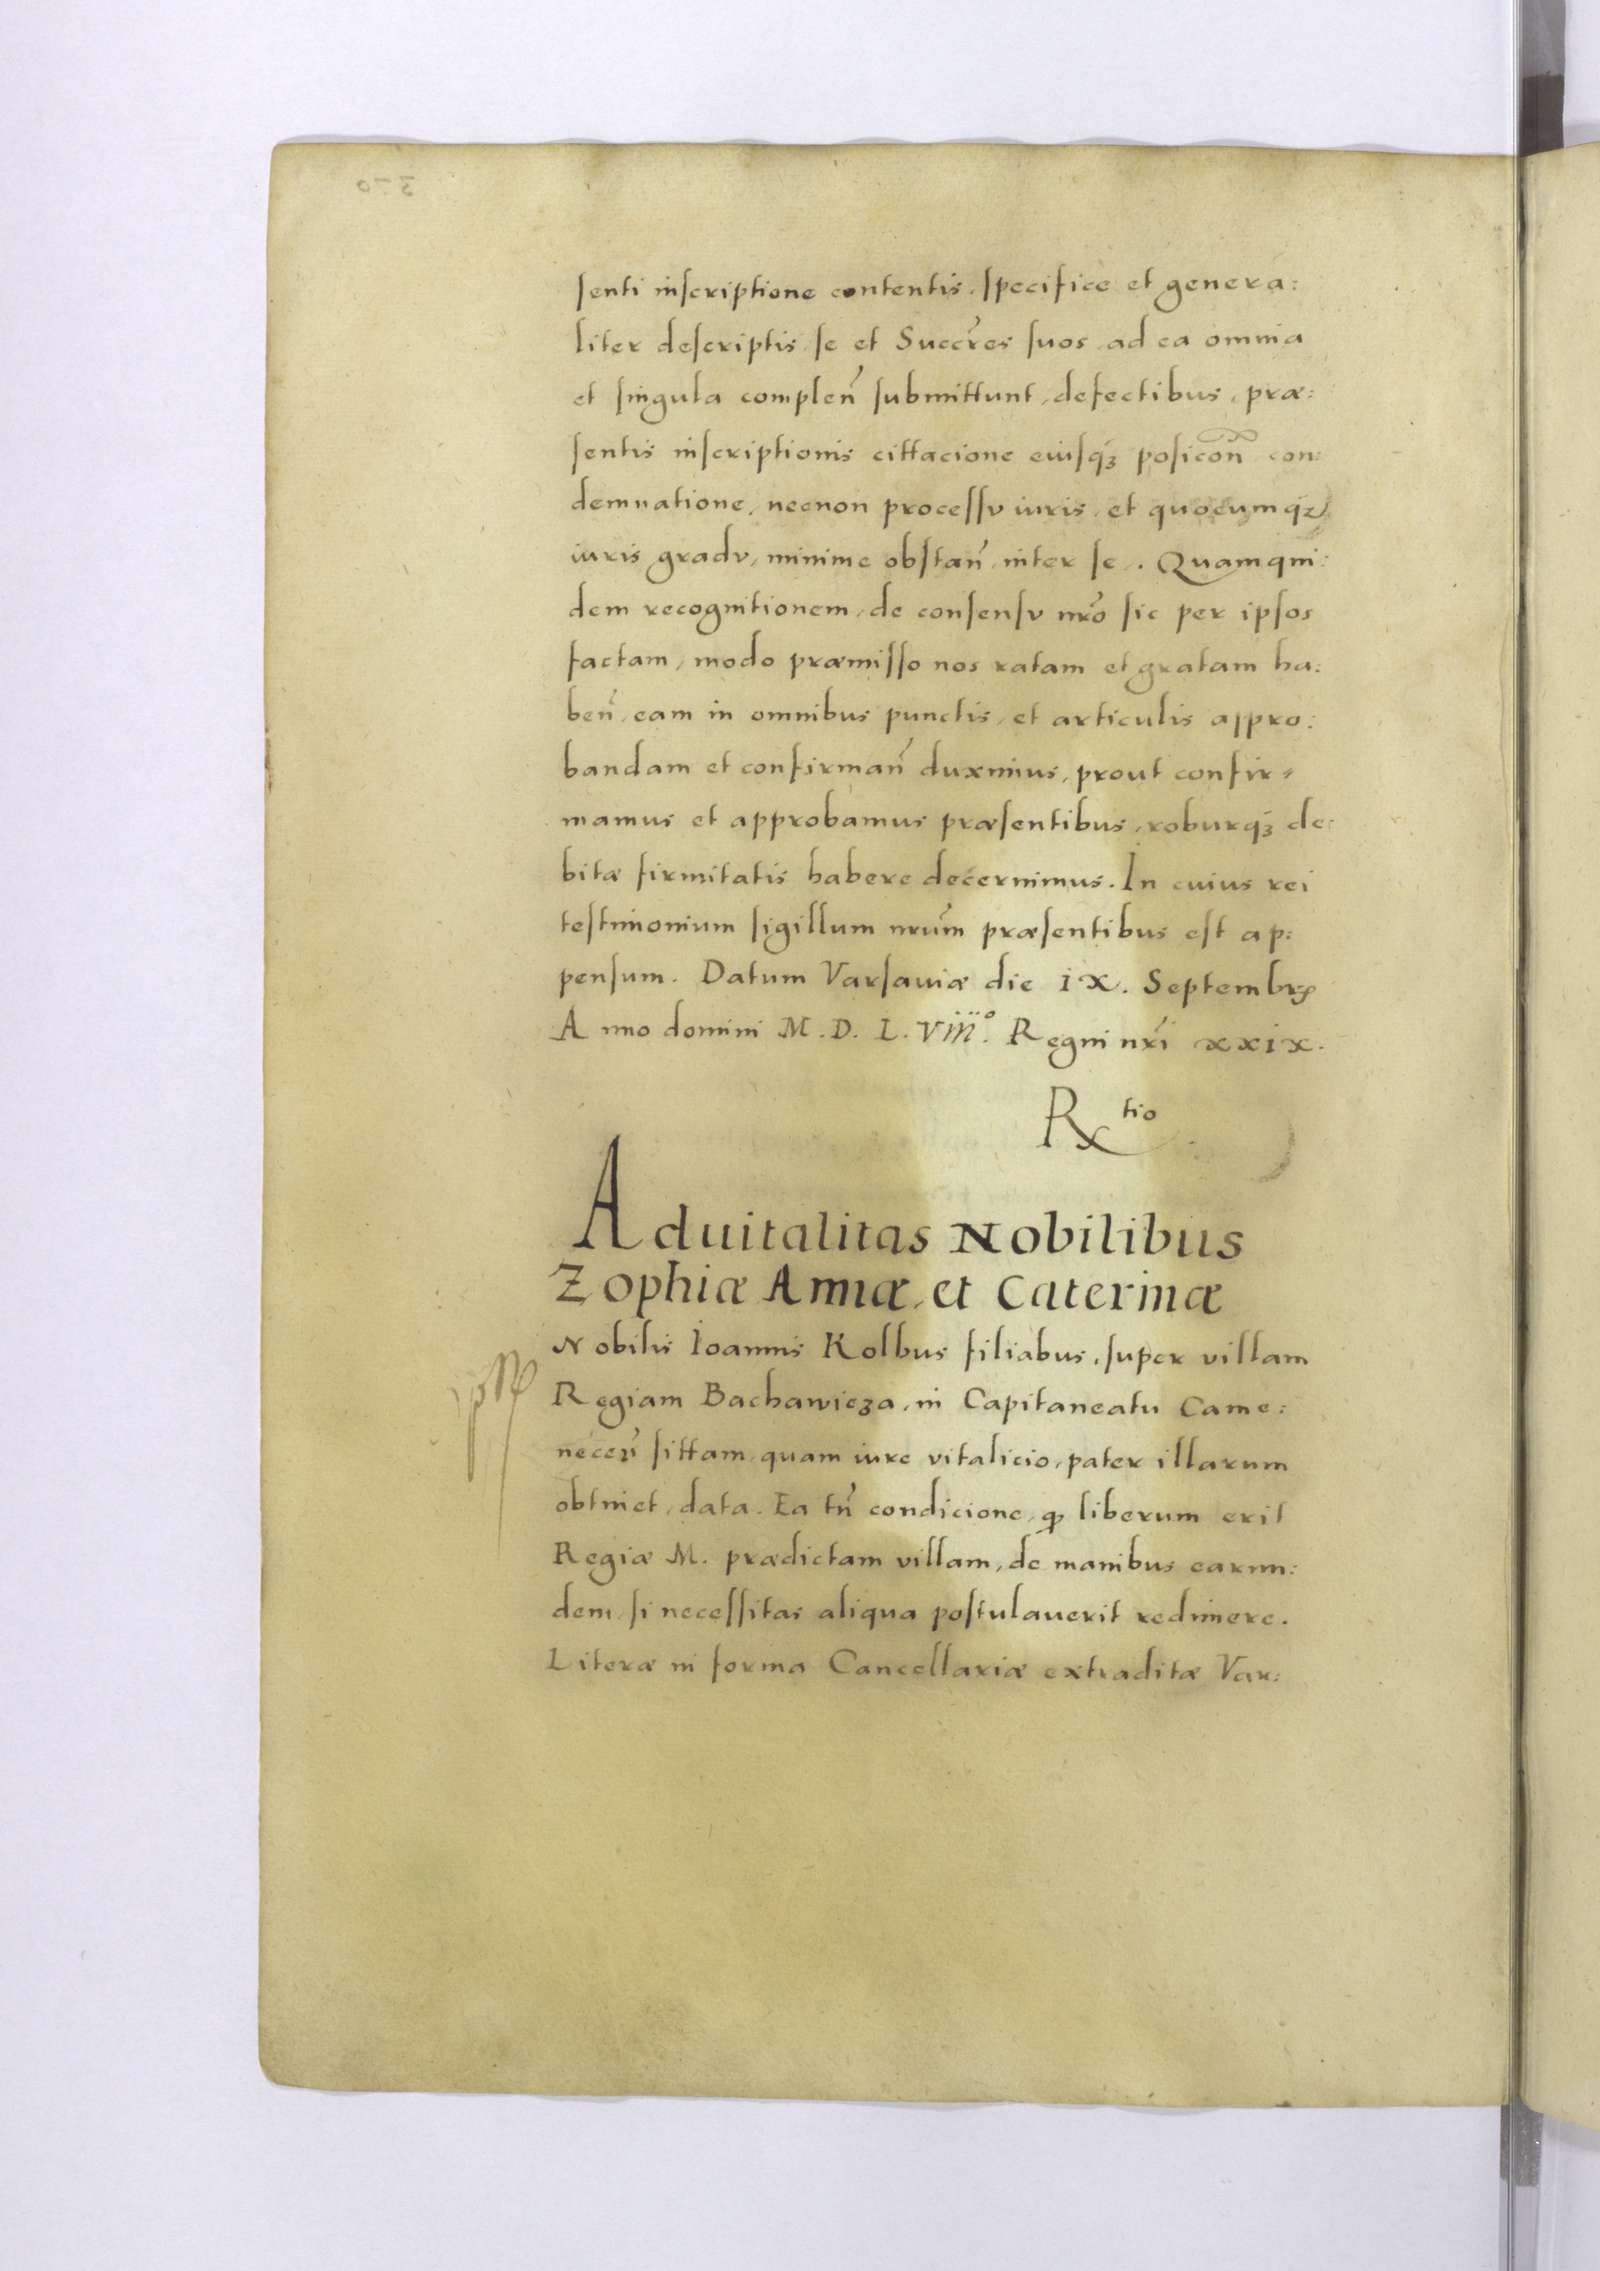 senti inscriptione contentis. specifice et genera:
liter descriptis, se et Succr̃es suos, ad ea omnia
et singula compleñ submittunt, defectibus, præ:
sentis inscriptionis cittacione eiusq́ꝫ posicoñ con:
demnatione, necnon processv iuris, et quocumq́ꝫ
iuris gradv, minime obstañ, inter se. Quamqui:
dem recognitionem, de consensv nr̃o sic per ipsos
factam, modo præmisso nos ratam et gratam ha:
beñ, eam in omnibus punctis, et articulis appro:
bandam et confirmañ duximus, prout confir:
mamus et approbamus præsentibus, roburq́ꝫ de:
bitæ firmitatis habere decernimus. In cuius rei
testimonium sigillum nr̃um præsentibus est ap:
pensum. Datum Varsauiæ die IX. Septembrꝭ
Anno domini M.D.L. Viii°. Regni nr̃i xxix.
Rtio
Advitalitas Nobilibus
Zophiæ Annæ, et Caterinæ
Nobilis Ioannis Kolbus filiabus, super villam
Regiam Bachawicza, in Capitaneatu Came:
neceñ sittam, quam iure vitalicio, pater illarum
obtinet, data. Ea tñ condicione, ꝙ liberum erit
Regiæ M. prædictam villam, de manibus earun:
dem, si necessitas aliqua postulauerit redimere.
Literæ in forma Cancellariæ extraditæ Var: